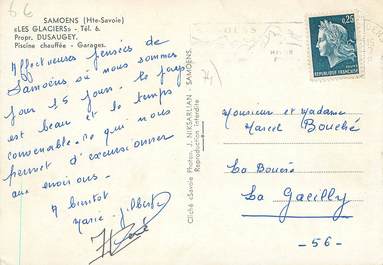 SAMOENS (Hte-Savoie)
«LES GLACIERS» - Tél. 6.
Propr. DUSAUGEY.
Piscine chauffée - Garages.
Affectueuses pensées de
Samoëns où nous sommes
pour 15 jours. le pays
est beau et le temps
convenable. ce qui nous
permet d'excursionner
aux environs.
A bientôt
Marie-Gilberte
Cliché «Savoie Photo», J. NIKSARLIAN - SAMOENS.
Reproduction interdite
0,25
REPUBLIQUE FRANÇAISE
Monsieur et Madame
Marcel Bouché
La Gacilly
-56-